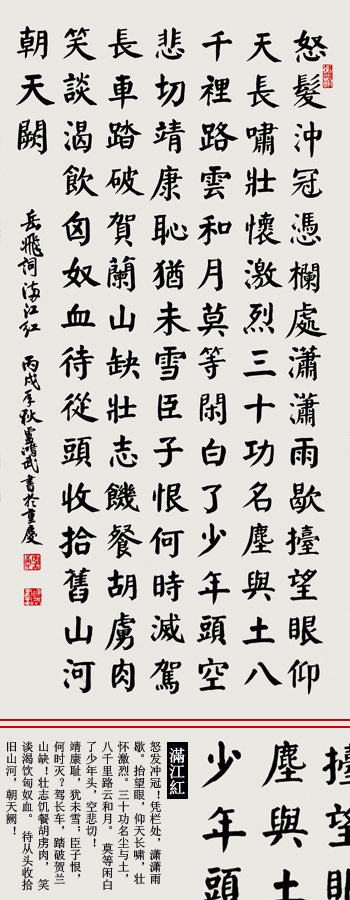 怒髮沖冠憑欄處瀟瀟雨歇擡望眼仰
天長嘯壯懷激烈三十功名塵與土八
千裡路雲和月莫等閑白了少年頭空
悲切靖康恥猶未雪臣子恨何時滅駕
長車踏破賀蘭山缺壯志饑餐胡虜肉
笑談渴飲匈奴血待從頭收拾舊山河
朝天闕
岳飛詞滿江紅 丙戌年秋盧鴻武書於重慶
擡望
塵與土
少年頭
滿江紅
怒发冲冠！凭栏处，潇潇雨
歇。抬望眼，仰天长啸，壮
怀激烈。三十功名尘与土，
八千里路云和月。莫等闲白
了少年头，空悲切！
靖康耻，犹未雪；臣子恨，
何时灭？驾长车，踏破贺兰
山缺！壮志饥餐胡虏肉，笑
谈渴饮匈奴血。待从头收拾
旧山河，朝天阙！